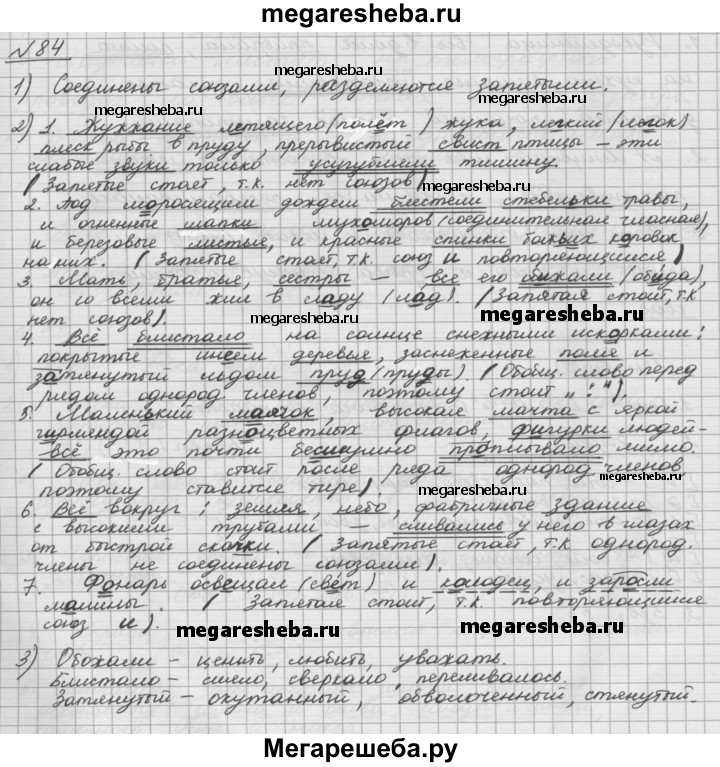 megaresheba.ru
№84
megaresheba.ru
1) Соединены союзами, разделяются запятыми.
megaresheba.ru megaresheba.ru
2) 1. Жужжание летящего (полёт) жука, легкий (легок)
плеск рыбы в пруду, прерывистый свист птицы – эти
слабые звуки только усугубляли тишину.
(Запятые стоят, т.к. нет союзов)
megaresheba.ru
2. Под моросящим дождем блестели стебельки травы,
и огненные шапки мухоморов (соединительная гласная),
и березовые листья, и красные спинки божьих коровок
на них. (Запятые стоят, т.к. союз и повторяющийся)
3. Мать, братья, сестры – все его обижали (обида),
он со всеми жил в ладу (лад). (Запятая стоит, т.к
нет союзов).
megaresheba.ru megaresheba.ru
4. Всё блистало на солнце снежными искорками:
покрытые инеем деревья, заснеженные поля и
затянутый льдом пруд (пруды) (Обобщ. слово перед
рядом однород членов, поэтому стоит „:").
5. Маленький маячок, высокая мачта с яркой
гирляндой разноцветных флагов, фигурки людей–
всё это почти бесшумно проплывало мимо.
(Обобщ. слово стоит после ряда однород членов
поэтому ставится тире).
megaresheba.ru megaresheba.ru
6. Всё вокруг: земля, небо, фабричные здания
с высокими трубами – сливались у него в глазах
от быстрой скачки. (Запятые стоят, т.к однород.
члены не соединены союзами).
7. Фонарь освещал (свет) и колодец, и заросли
малины. (Запятая стоит, т.к. повторяющийся
союз и).
megaresheba.ru megaresheba.ru
3) Обожали – ценить, любить, уважать.
Блистало – сияло, сверкало, переливалось.
Затянутый – окутанный, обволоченный, стянутый.
Мегарешеба.ру